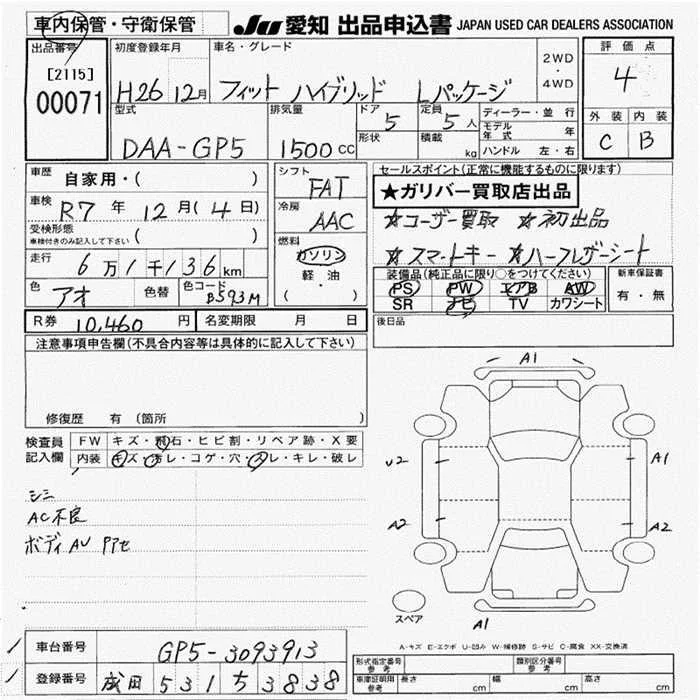 車内保管・守衛保管
JU 愛知 出品申込書 JAPAN USED CAR DEALERS ASSOCIATION
出品番号 [2115] 00071
初度登録年月 H26 12月
車名・グレード フィット ハイブリッド Lパッケージ
2WD・4WD
評価点 4
型式 DAA-GP5
排気量 1500 CC
ドア 5
形状
定員 5 人
積載 kg
ディーラー・並行
モデル年式 年
ハンドル 左・右
外装 内装
C B
車歴 自家用・( )
車検 R7年 12月(4日)
受検形態
車検付きのみ記入して下さい ( )
走行 6万1千136km
色 アオ 色替 色コード B593M
シフト FAT
冷房 AAC
燃料 ガソリン
軽・油
( )
セールスポイント(正常に機能するものに限ります)
★ガリバー買取店出品
☆ユーザー買取 ☆初出品
☆スマートキー ☆ハーフレザーシート
装備品(純正品に限り○をつけてください)
PS PW エアB AW
SR ナビ TV カワシート
新車保証書
有・無
R券 10,460 円
名変期限 月 日
後日品
注意事項申告欄(不具合内容等は具体的に記入して下さい)
修復歴 有 (箇所 )
検査員記入欄
FW キズ・飛石・ヒビ割・リペア跡・X要
内装 キズ・汚レ・コゲ・穴・スレ・キレ・破レ
シミ
AC不良
ボディAU
A1
U2
A1
A2
A2
A1
スペア
A-キズ E-エクボ U-凹み W-補修跡 S-サビ C-腐食 XX-交換済
車台番号 GP5-3093913
登録番号 成田 531 ち 3838
形式指定番号 参考
類別区分番号 参考
車庫証明用 参考 長さ cm 幅 cm 高さ cm